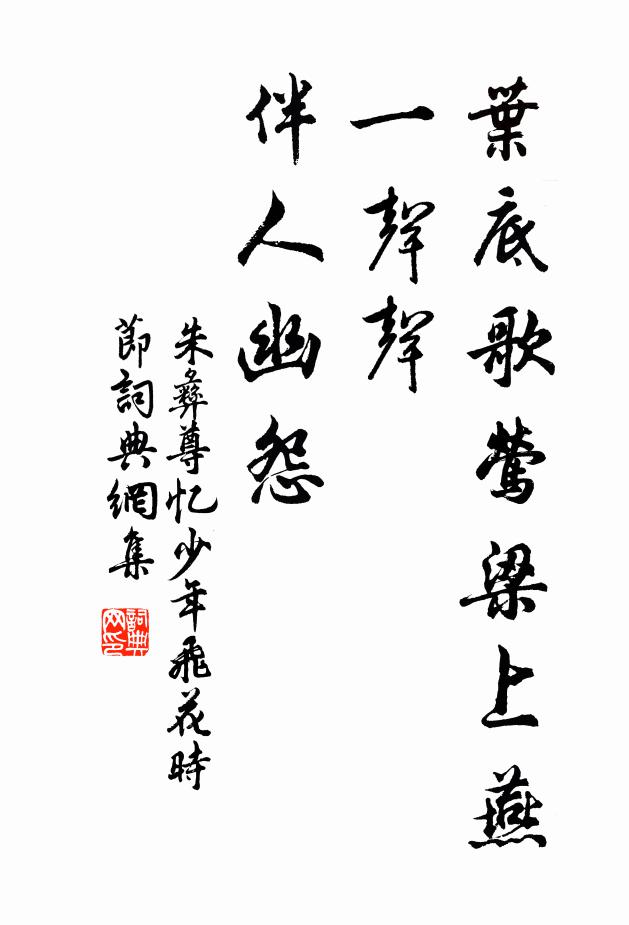 葉底歌鶯梁上燕
一聲聲
伴人幽怨
朱彝尊忆少年飛花時
節詞典網集
詞典網印